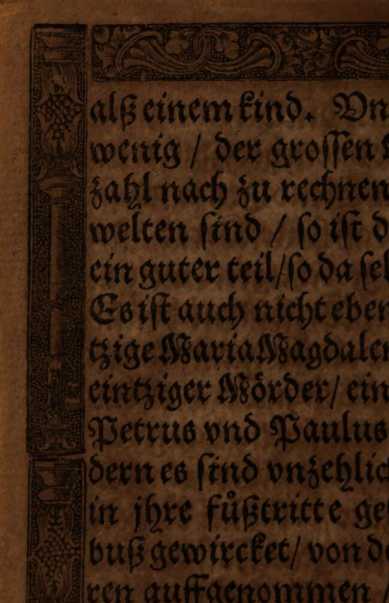 alß einem kind. Vn
wenig / der grossen
zahl nach zu rechnen
welten sind / so ist d
ein guter teil/so da sel
Es ist auch nicht eben
tzige Maria Magdalen
eintziger Mörder/ ein
Petrus vnd Paulus
dern es sind vnzehlic
in jhre fůßtritte ge
buß gewircket/ von d
ren auffgenommen /